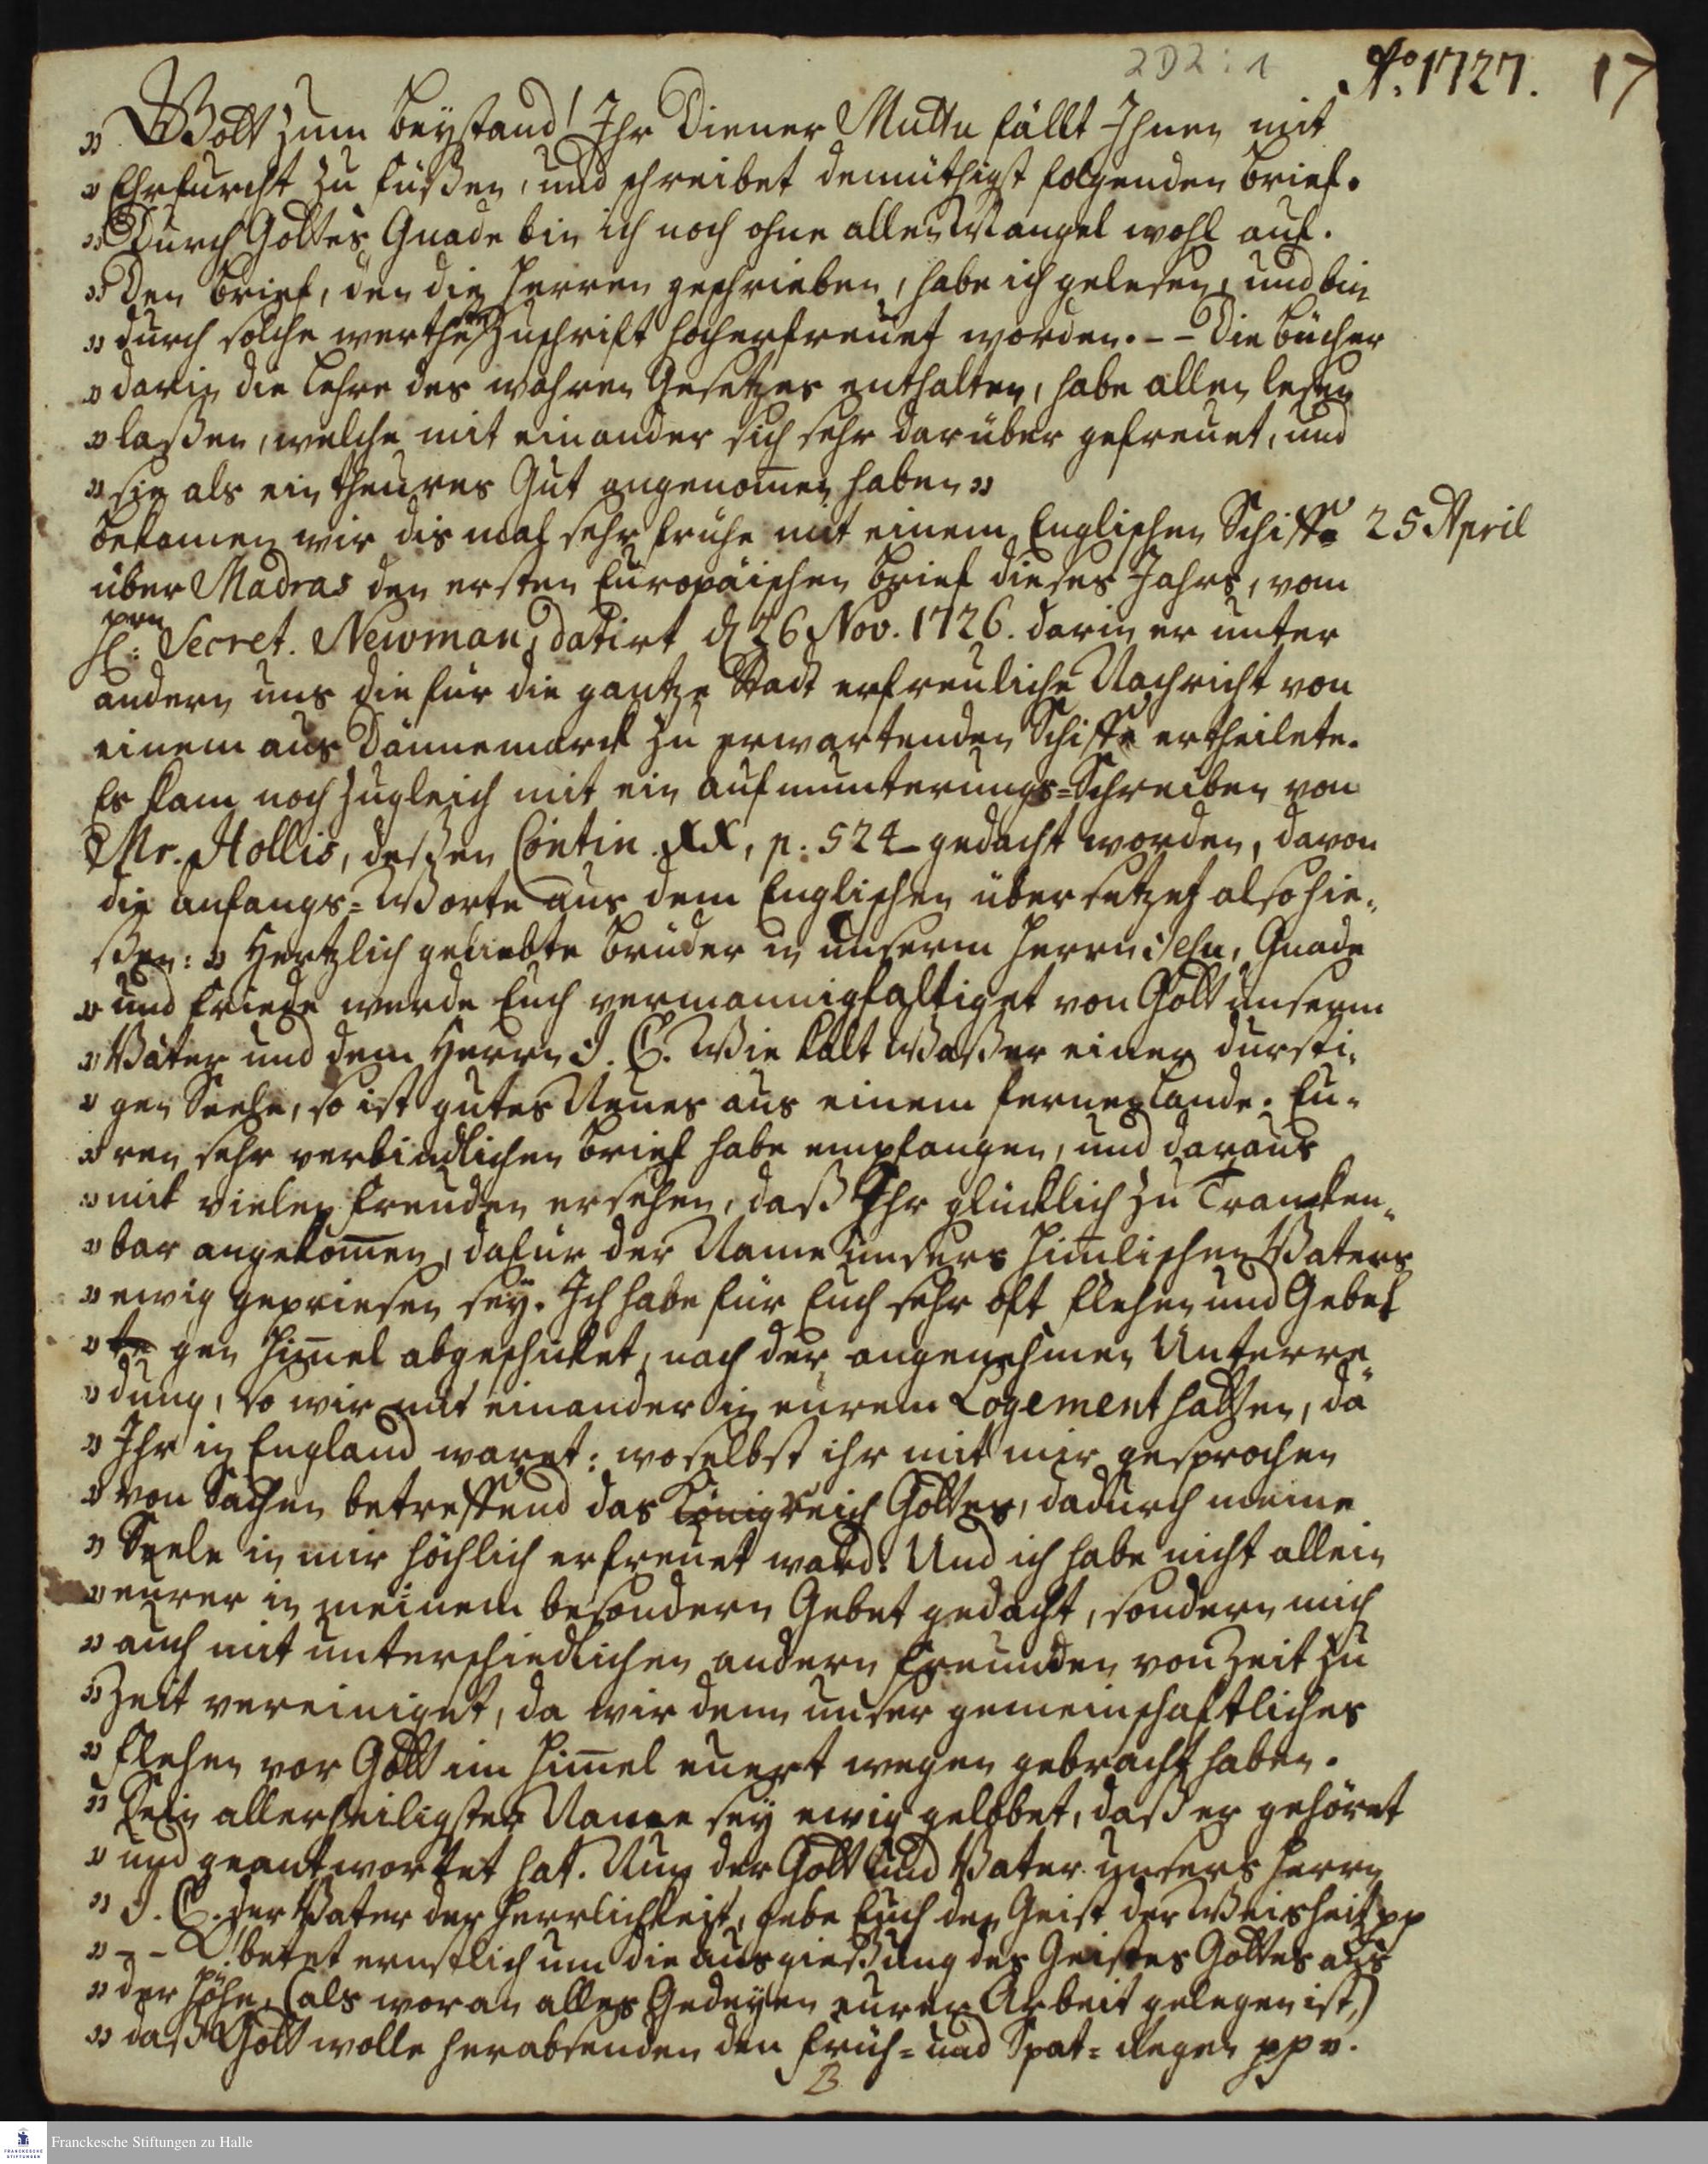 2D2:1 Aº. 1727. 17
„ Gott zum Beystand! Ihr Diener Muttu fällt Ihnen mit
„ Ehrfurcht zu Füßen, und schreibet demüthigst folgenden Brief.
„ Durch Gottes Gnade bin ich noch ohne allen Mangel wohl auf.
„ Den Brief, den die Herren geschrieben, habe ich gelesen, und bin
„ durch solche werthe Zuschrift hocherfreuet worden. - - Die Bücher
„ darin die Lehre des wahren Gesetzes enthalten, habe allen lesen
„ laßen, welche mit einander sich sehr darüber gefreuet, und
„ sie als ein theures Gut angenom̄en haben „
Bekamen wir dis mal sehr frühe mit einem Englischen Schiffe 25 April
über Madras den ersten Europäischen Brief dieses Jahrs, vom
H: Secret. Newman, datirt d 26 Nov. 1726. darin er unter
andern uns die für die gantze Stadt erfreuliche Nachricht von
einem aus Dännemarck zu erwartenden Schiffe ertheilete.
Es kam noch zugleich mit ein Aufmunterungs-Schreiben von
Mr. Hollis, deßen Contin. XX, p. 524 gedacht worden, davon
die Anfangs-Worte aus dem Englischen übersetzet also hie-
ßen: „ Hertzlich geliebte Brüder in unserm Herrn JEsu, Gnade
„ und Friede werde Euch vermannigfaltiget von Gott unserm
„ Vater und dem Herrn J. C. Wie kalt Waßer einer dursti-
„ gen Seele, so ist gutes Neues aus einem fernen Lande. Eu-
„ ren sehr verbindlichen Brief habe empfangen, und daraus
„ mit vielen Freuden ersehen, daß Ihr glücklich zu Tranken-
„ bar angekom̄en, dafür der Name unsers Him̄lischen Vaters
„ ewig gepriesen sey. Ich habe für Euch sehr oft Flehen und Gebet
„ gen Him̄el abgeschicket, nach der angenehmen Unterre-
„ dung, so wir mit einander in eurem Logement hatten, da
„ Ihr in England waret: woselbst ihr mit mir gesprochen
„ von Sachen betreffend das Königreich Gottes, dadurch meine
„ Seele in mir höchlich erfreuet ward. Und ich habe nicht allein
„ eurer in meinem besondern Gebet gedacht, sondern mich
„ auch mit unterschiedlichen andern Freunden von Zeit zu
„ Zeit vereiniget, da wir denn unser gemeinschaftliches
„ Flehen vor Gott im Him̄el euert wegen gebracht haben.
„ Sein allerheiligster Name sey ewig gelobet, daß er gehöret
„ und geantwortet hat. Nun der Gott und Vater unsers Herrn
„ J. C. der Vater der Herrlichkeit, gebe Euch den Geist der Weisheit pp
„ - - O! betet ernstlich um die Ausgießung des Geistes Gottes aus
„ der Höhe, (als woran alles Gedeyen eurer Arbeit gelegen ist,)
„ daß Gott wolle herabsenden den Früh- und Spat-Regen pp „.
B
Franckesche Stiftungen zu Halle